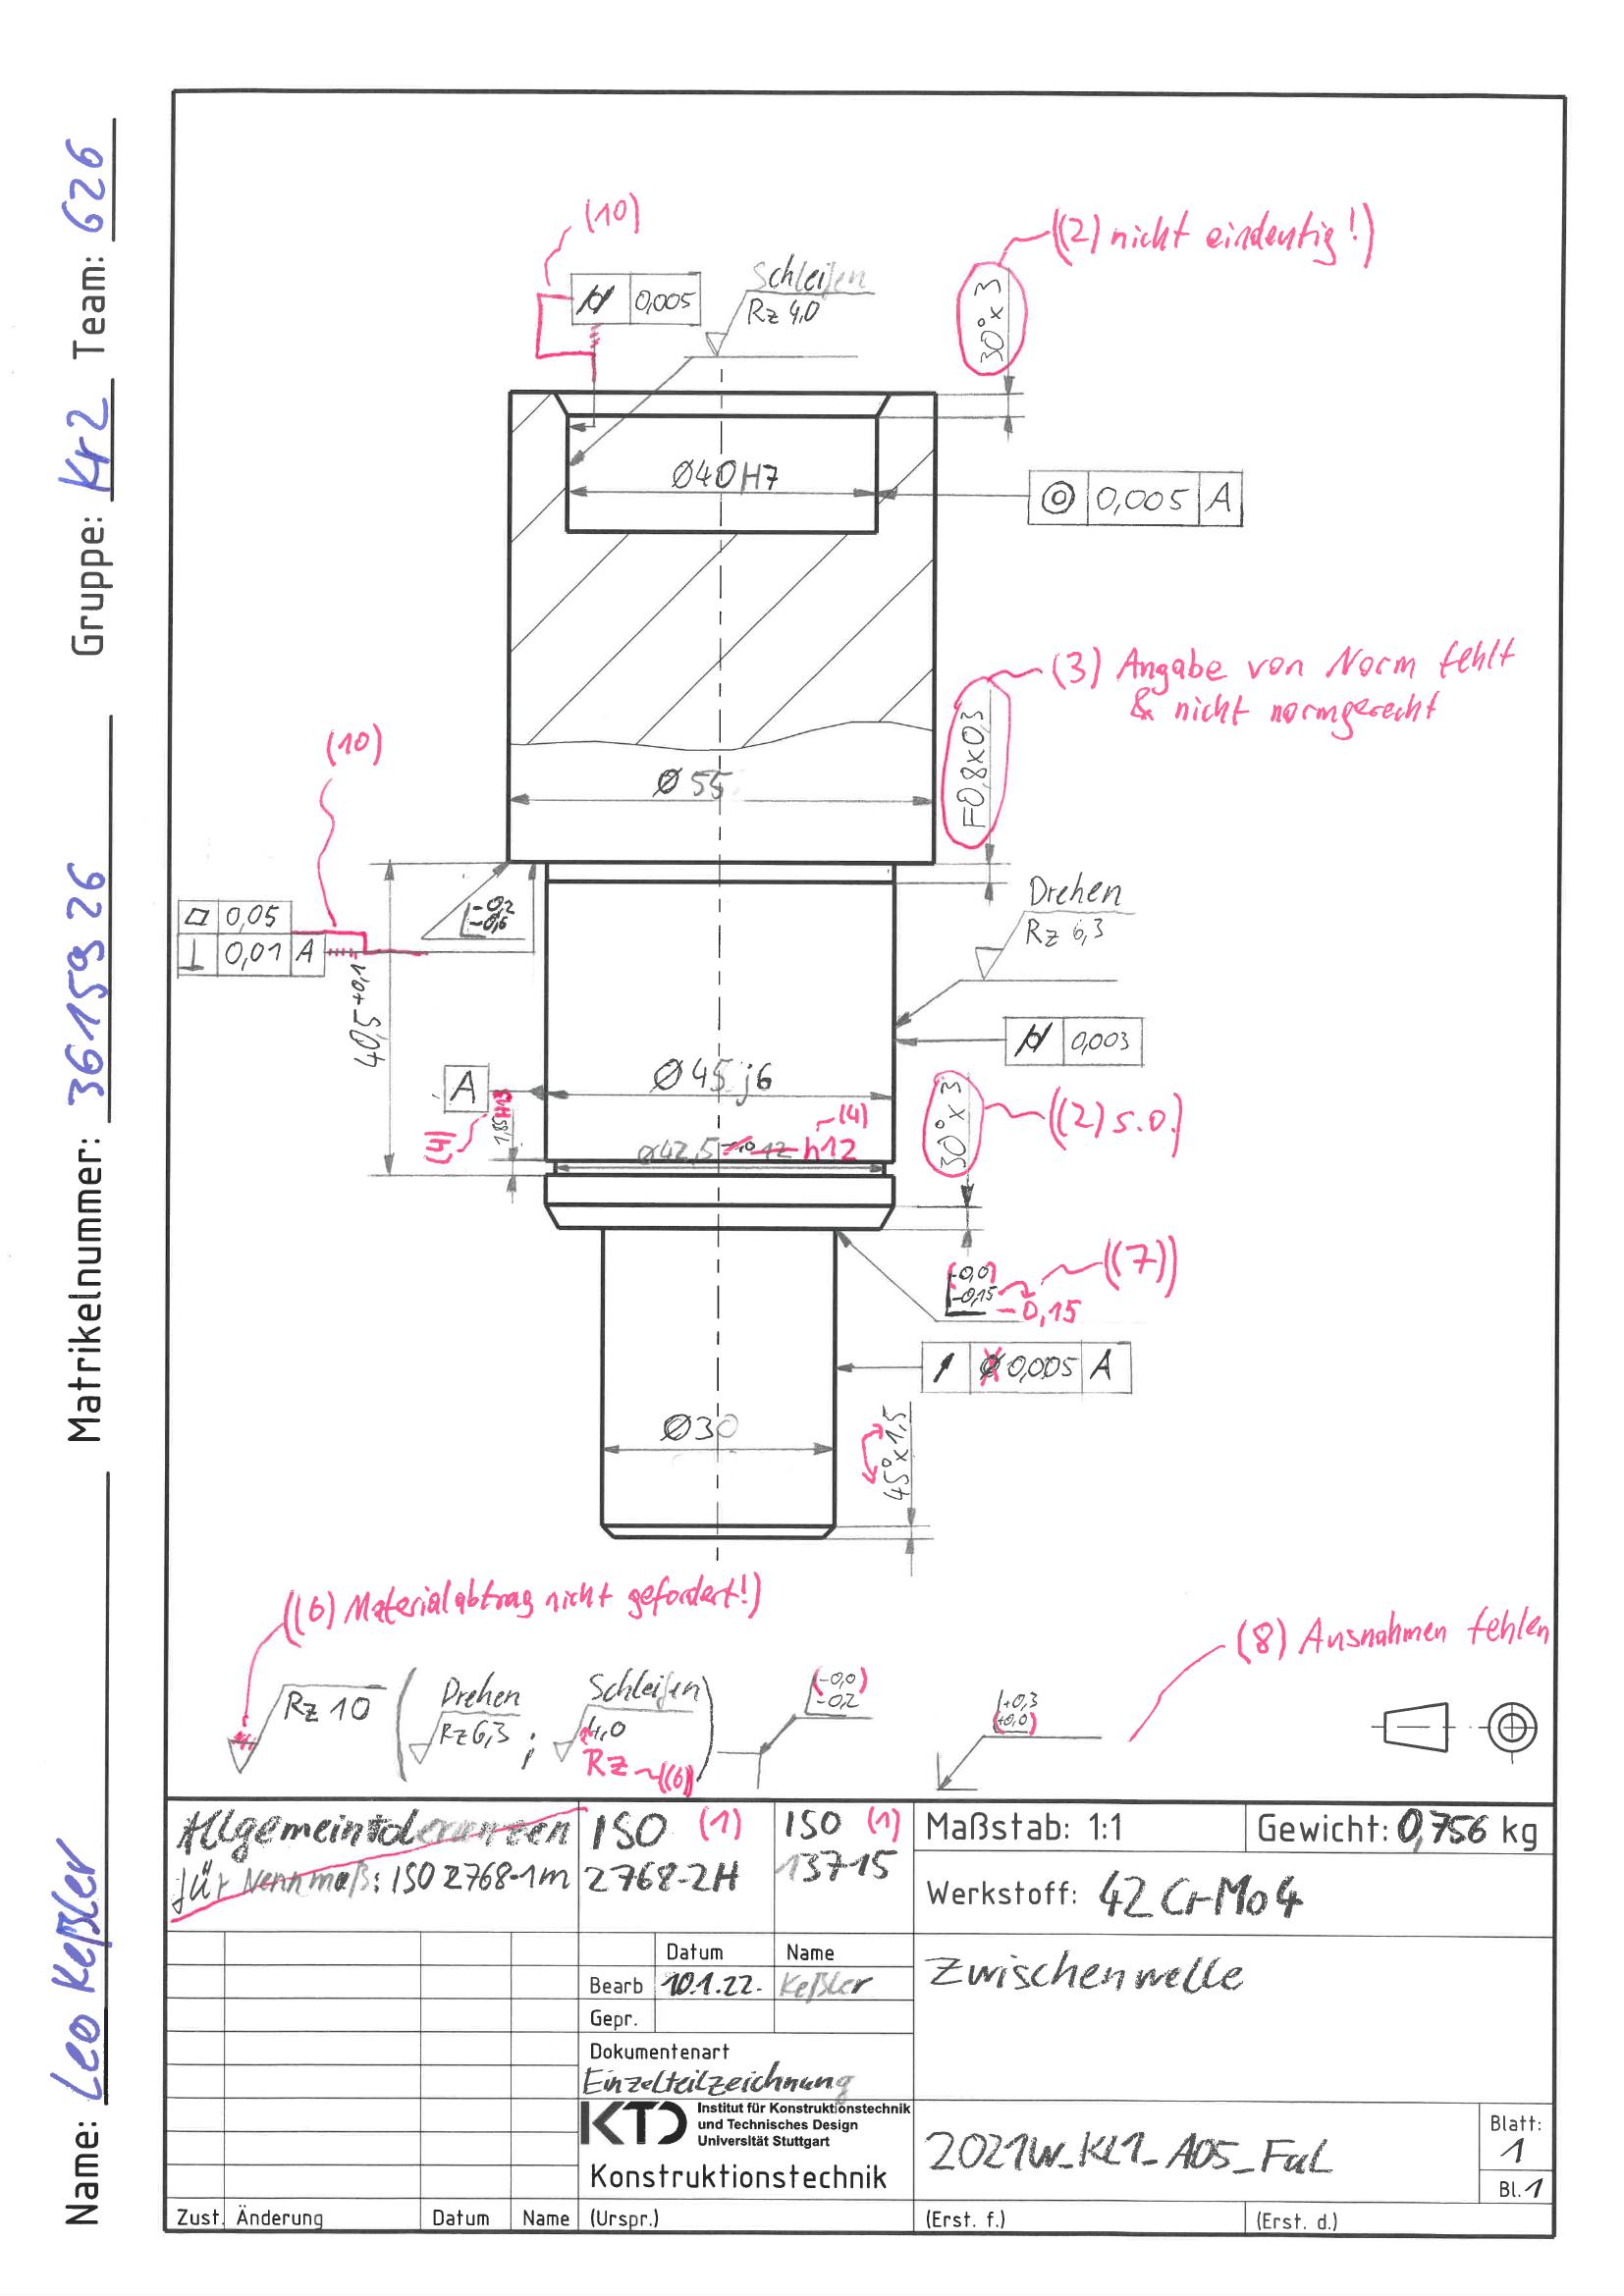 Name: Leo Keßler
Matrikelnummer: 3615926
Gruppe: Kr2 Team: 626
(10)
((2) nicht eindeutig!)
0,005
Schleifen
Rz 4,0
30°x3
Ø40H7
0,005 A
(3) Angabe von Norm fehlt
& nicht normgerecht
F0,8x0,3
(10)
Ø55
-0,2
-0,6
0,05
0,01 A
40,5+0,1
Drehen
Rz 6,3
0,003
A
Ø45 j6
1,85 H13
(4)
(4)
Ø42,5 h12
30°x3
((2) s.o.)
(-0,0)
-0,15
-0,15
((7))
Ø 0,005 A
Ø30
45°x1,5
((6) Materialabtrag nicht gefordert!)
(8) Ausnahmen fehlen
Rz 10
( Drehen
Rz 6,3 ;
Schleifen )
4,0
Rz ((6))
(-0,0)
-0,2
+0,3
(+0,0)
Allgemeintoleranzen
für Nennmaß: ISO 2768-1m
ISO (1)
2768-2H
ISO (1)
13715
Maßstab: 1:1
Gewicht: 0,756 kg
Werkstoff: 42CrMo4
Datum Name
Bearb 10.1.22. Keßler
Gepr.
Zwischenwelle
Dokumentenart
Einzelteilzeichnung
KTD Institut für Konstruktionstechnik
und Technisches Design
Universität Stuttgart
Konstruktionstechnik
2021W_KL1_A05_FuL
Blatt:
1
Bl. 1
Zust. Änderung Datum Name (Urspr.) (Erst. f.) (Erst. d.)